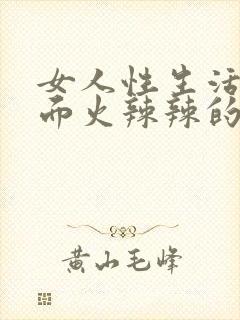 女人性生活
而火辣辣的
黄山毛峰